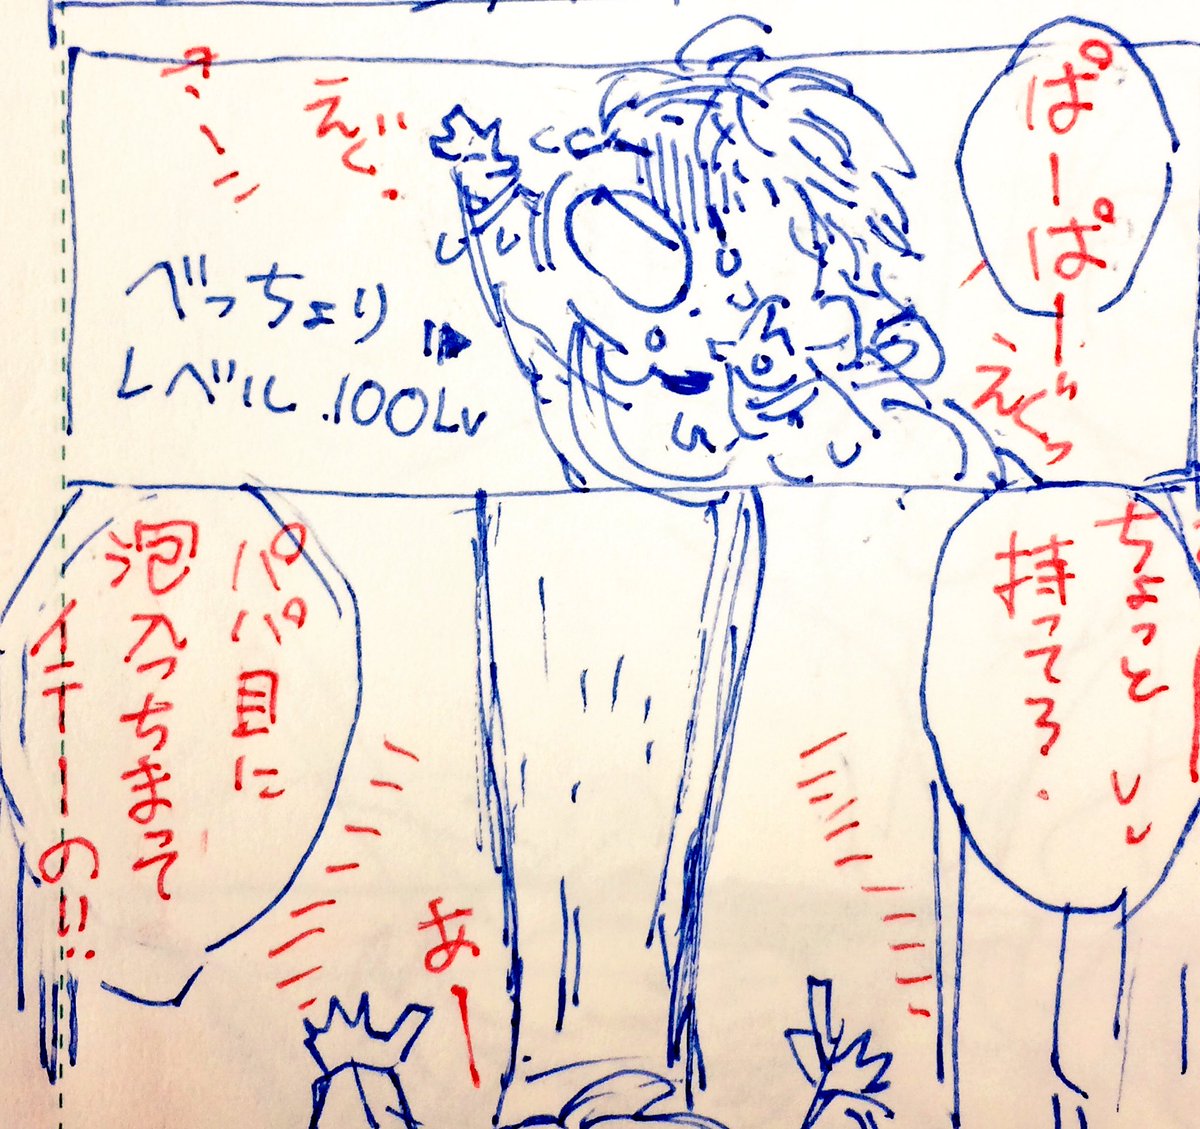 ぱーぱーっ
えぐっ
えぐ.
べっちょり
レベル.100Lv
ちょっと
持ってろ.
パパ目に
泡入っちまって
イテーの!!
あー